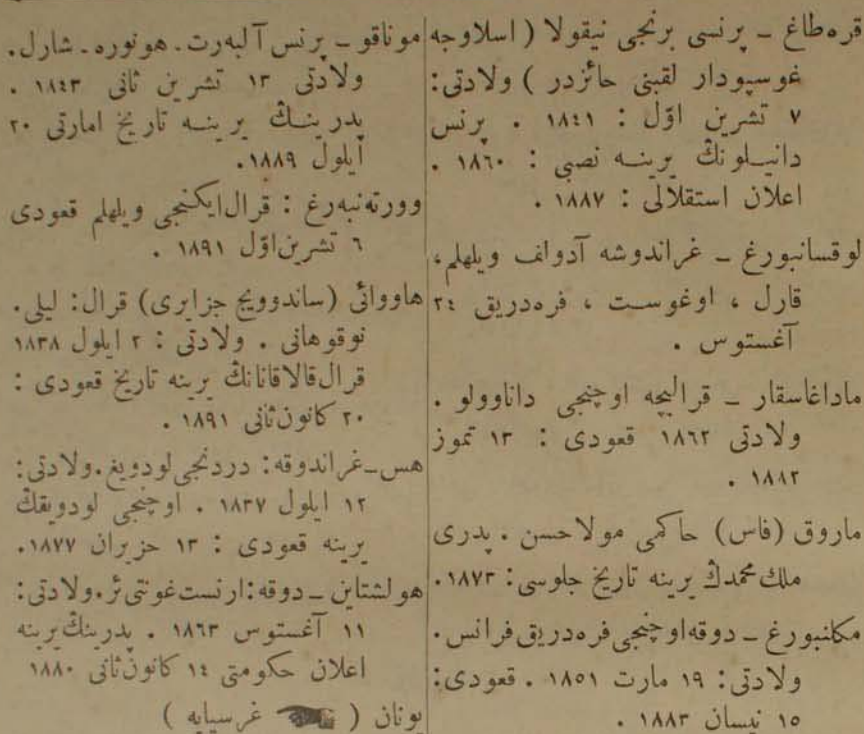 قره‌طاغ ـ پرنسی برنجی نیقولا ( اسلاوجه
غوسپودار لقبنی حائزدر ) ولادتی :
٧ تشرین اوّل : ١٨٤١ . پرنس
دانیـلونك یرینـه نصبی : ١٨٦٠ .
اعلان استقلالی : ١٨٨٧ .
لوقسانبورغ ـ غراندوشه آدولف ویلهلم ،
قارل ، اوغوست ، فره‌دریق ٢٤
آغستوس .
ماداغاسقار ـ قرالیچه اوچنجی داناوولو .
ولادتی ١٨٦٢ قعودی : ١٣ تموز
١٨٨٢ .
ماروق (فاس) حاكمی مولاحسن . پدری
ملك محمدڭ یرینه تاریخ جلوسی : ١٨٧٣ .
مكلنبورغ ـ دوقه‌اوچنجی فره‌دریق فرانس .
ولادتی : ١٩ مارت ١٨٥١ . قعودی :
١٥ نیسان ١٨٨٣ .
موناقو ـ پرنس آلبه‌رت ـ هونوره ـ شارل .
ولادتی ١٣ تشرین ثانی ١٨٤٣ .
پدرینـڭ یرینـه تاریخ امارتی ٢٠
آیلول ١٨٨٩ .
وورته‌نبه‌رغ : قرال‌ایكنجی ویلهلم قعودی
٦ تشرین‌اوّل ١٨٩١ .
هاووائی (ساندوویج جزایری) قرال : لیلی .
نوقوهانی . ولادتی : ٢ ایلول ١٨٣٨
قرال قالاقانانڭ یرینه تاریخ قعودی :
٢٠ كانون‌ثانی ١٨٩١ .
هس ـ غراندوقه : دردنجی لودویغ . ولادتی :
١٢ ایلول ١٨٣٧ . اوچنجی لودویقڭ
یرینه قعودی : ١٣ حزیران ١٨٧٧ .
هولشتاین ـ دوقه : ارنست غونتی‌ئر . ولادتی :
١١ آغستوس ١٨٦٣ . پدرینڭ یرینه
اعلان حكومتی ١٤ كانون‌ثانی ١٨٨٠
یونان ( ☚ غرسیایه )